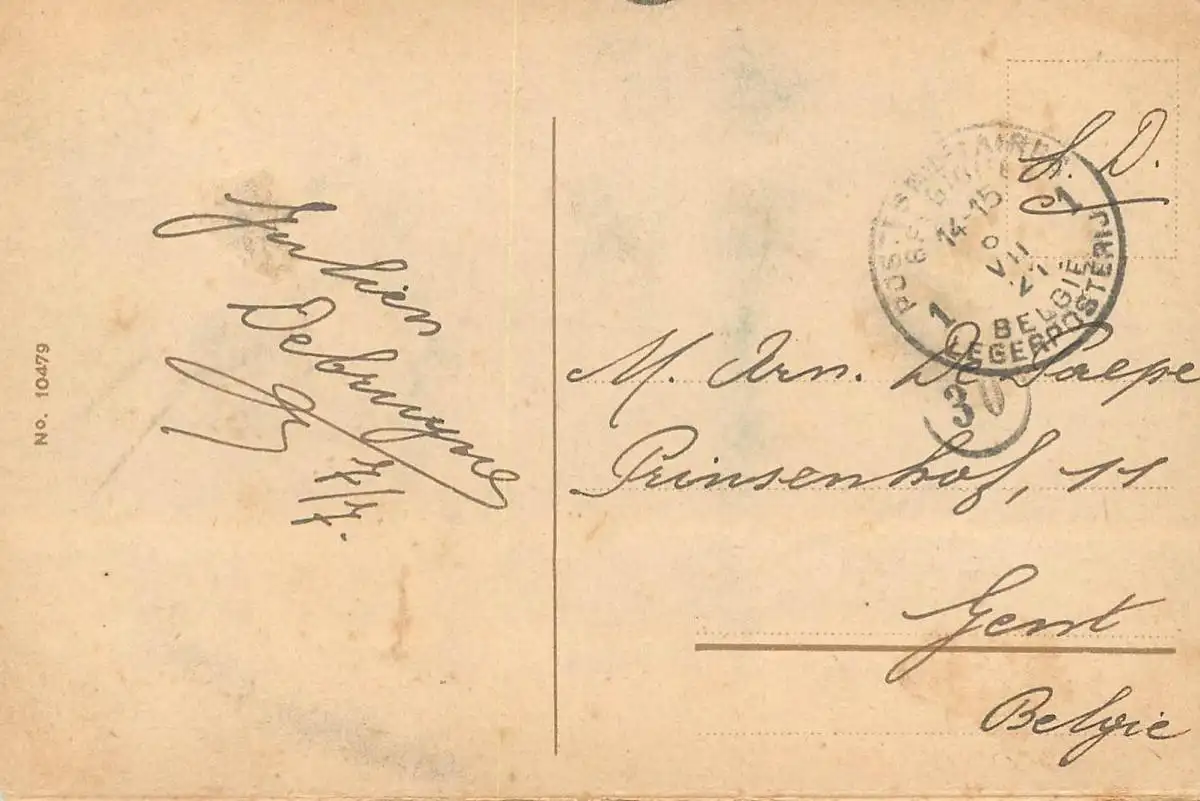 No. 10479
Julien
Debruyne
7/7.
S. D.
POSTES MILITAIRES
BELGIQUE
14-15
VII
1
1
BELGIE
LEGERPOSTERIJ
30
M. Arn. De Paepe
Prinsenhof, 11
Gent
Belgie